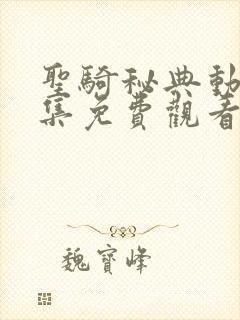 聖騎秘典動
集免費觀看
魏寶峰